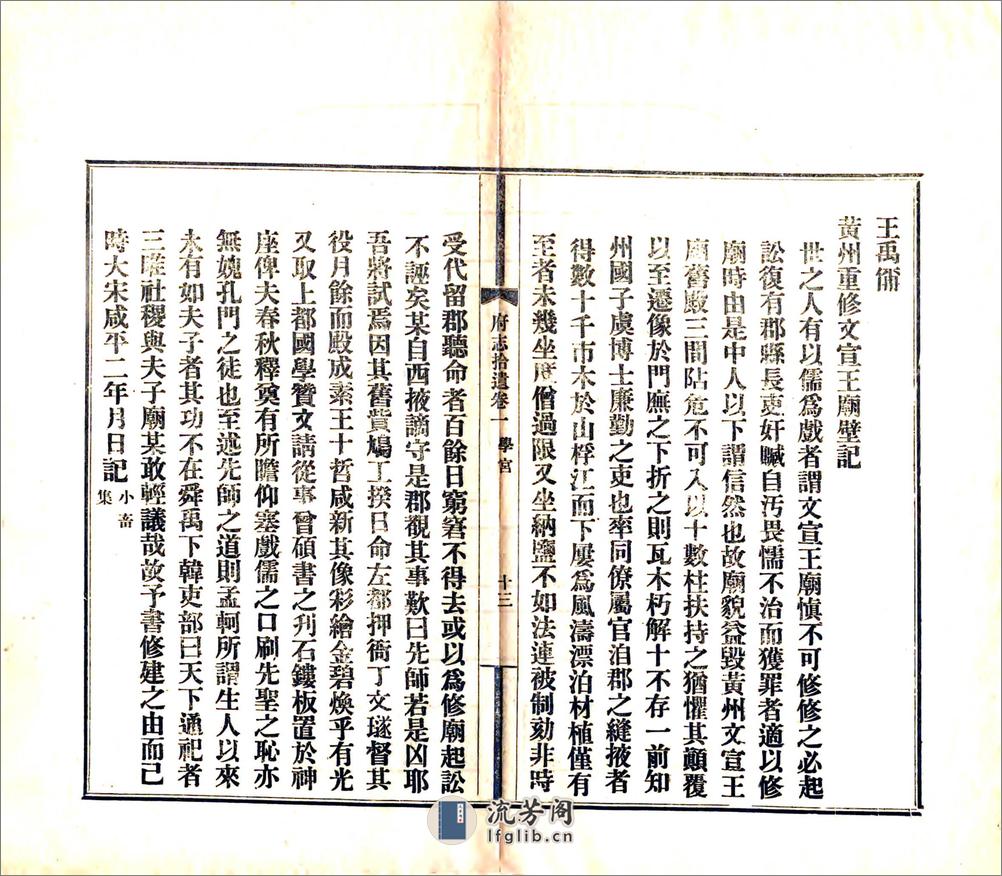 王禹偁
黃州重修文宣王廟壁記
世之人有以儒爲戲者謂文宣王廟愼不可修修之必起
訟復有郡縣長吏奸贓自汚畏懦不治而獲罪者適以修
廟時由是中人以下謂信然也故廟貌益毀黃州文宣王
廟舊殿三間阽危不可入以十數柱扶持之猶懼其顚覆
以至遷像於門廡之下折之則瓦木朽解十不存一前知
州國子虞博士廉勤之吏也率同僚屬官洎郡之縫掖者
得數十千市木於山桴江而下屢爲風濤漂泊材植僅有
至者未幾坐度僧過限又坐納鹽不如法連被制劾非時
府志拾遺卷一　學宮　十三
受代留郡聽命者百餘日窮窘不得去或以爲修廟起訟
不誣矣某自西掖謫守是郡覩其事歎曰先師若是凶耶
吾將試焉因其舊貲鳩工揆日命左都押衙丁文璲督其
役月餘而殿成素王十哲咸新其像彩繪金碧煥乎有光
又取上都國學贊文請從事曾碩書之刋石鏤板置於神
座俾夫春秋釋奠有所瞻仰塞戲儒之口刷先聖之恥亦
無媿孔門之徒也至述先師之道則孟軻所謂生人以來
未有如夫子者其功不在舜禹下韓吏部曰天下通祀者
三唯社稷與夫子廟某敢輕議哉故予書修建之由而已
時大宋咸平二年月日記小畜集
流芳阁
lfglib.cn